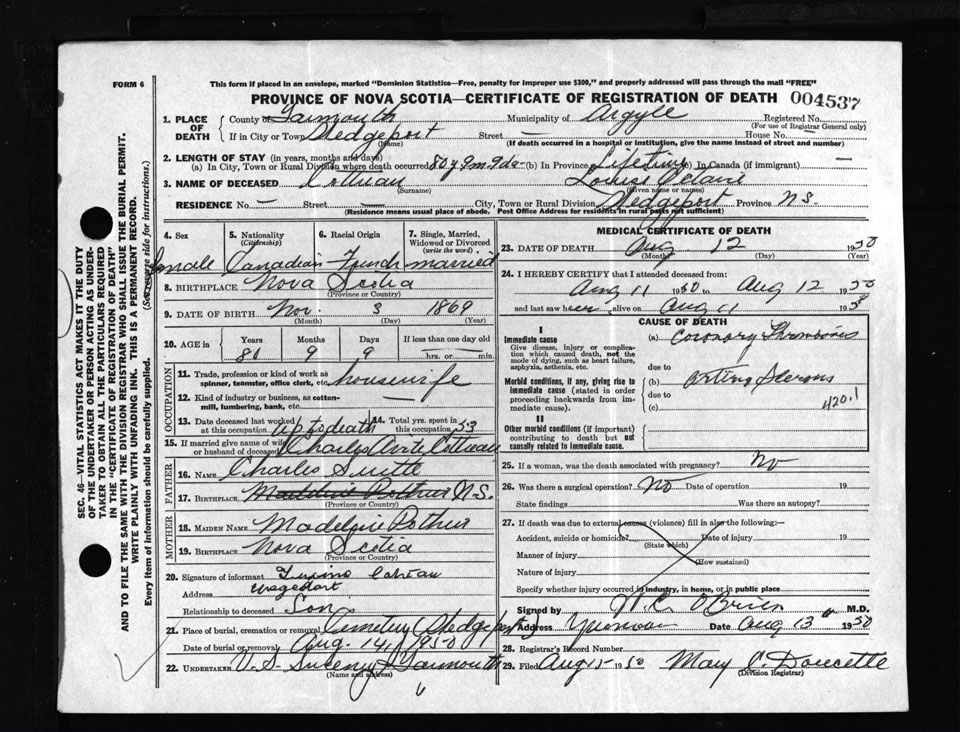 FORM 6
This form if placed in an envelope, marked "Dominion Statistics—Free, penalty for improper use $300," and properly addressed will pass through the mail "FREE"
PROVINCE OF NOVA SCOTIA—CERTIFICATE OF REGISTRATION OF DEATH 004537
1. PLACE OF DEATH County of Yarmouth Municipality of Argyle Registered No.
(For use of Registrar General only)
If in City or Town Wedgeport Street — House No.
(Name) (If death occurred in a hospital or institution, give the name instead of street and number)
2. LENGTH OF STAY (in years, months and days)
(a) In City, Town or Rural Division where death occurred 80 y 9 m 9 da (b) In Province Lifetime In Canada (if immigrant)
3. NAME OF DECEASED Cottreau Louise
(Surname) (Given name or names)
RESIDENCE No. — Street — City, Town or Rural Division Wedgeport Province N.S.
(Residence means usual place of abode. Post Office Address for residents in rural parts not sufficient)
4. Sex 5. Nationality (Citizenship) 6. Racial Origin 7. Single, Married, Widowed or Divorced (write the word)
Female Canadian French married
8. BIRTHPLACE Nova Scotia
(Province or Country)
9. DATE OF BIRTH Nov. 3 1869
(Month) (Day) (Year)
10. AGE in Years Months Days If less than one day
80 9 9 hrs. or min.
OCCUPATION
11. Trade, profession or kind of work as spinner, teamster, office clerk, etc. housewife
12. Kind of industry or business, as cotton-mill, lumbering, bank, etc. —
13. Date deceased last worked at this occupation up to death 14. Total yrs. spent in this occupation 53
15. If married give name of wife or husband of deceased Charles Cottreau
FATHER
16. NAME Charles Surette
17. BIRTHPLACE N.S.
(Province or Country)
MOTHER
18. MAIDEN NAME Pothier
19. BIRTHPLACE Nova Scotia
(Province or Country)
20. Signature of informant
Address Wedgeport
Relationship to deceased Son
21. Place of burial, cremation or removal Cemetery Wedgeport
Date of burial or removal Aug. 14, 1950
22. UNDERTAKER V. S. Sweeny Yarmouth
(Name and address)
MEDICAL CERTIFICATE OF DEATH
23. DATE OF DEATH Aug 12 1950
(Month) (Day) (Year)
24. I HEREBY CERTIFY that I attended deceased from:
Aug 11 1950 to Aug 12 1950
and last saw her alive on Aug 11 1950
CAUSE OF DEATH
I
Immediate cause (a) Coronary Thrombosis
Give disease, injury or complication which caused death, not the mode of dying, such as heart failure, asphyxia, asthenia, etc.
due to
Morbid conditions, if any, giving rise to immediate cause (stated in order proceeding backwards from immediate cause). (b)
due to
(c) 420.1
II
Other morbid conditions (if important) contributing to death but not causally related to immediate cause.
25. If a woman, was the death associated with pregnancy? No
26. Was there a surgical operation? No Date of operation 19
State findings Was there an autopsy?
27. If death was due to external causes (violence) fill in also the following:—
Accident, suicide or homicide? Date of injury 19
(State which)
Manner of injury
(How sustained)
Nature of injury
Specify whether injury occurred in industry, in home, or in public place
Signed by O'Brien M.D.
Address Date Aug 13 1950
28. Registrar's Record Number
29. Filed Aug 15 1950 Mary C. Doucette
(Division Registrar)
SEC. 46—VITAL STATISTICS ACT MAKES IT THE DUTY
OF THE UNDERTAKER OR PERSON ACTING AS UNDERTAKER TO OBTAIN ALL THE PARTICULARS REQUIRED
IN THE "CERTIFICATE OF REGISTRATION OF DEATH"
AND TO FILE THE SAME WITH THE DIVISION REGISTRAR WHO SHALL ISSUE THE BURIAL PERMIT.
WRITE PLAINLY WITH UNFADING INK. THIS IS A PERMANENT RECORD.
Every item of information should be carefully supplied. (See reverse side for instructions.)